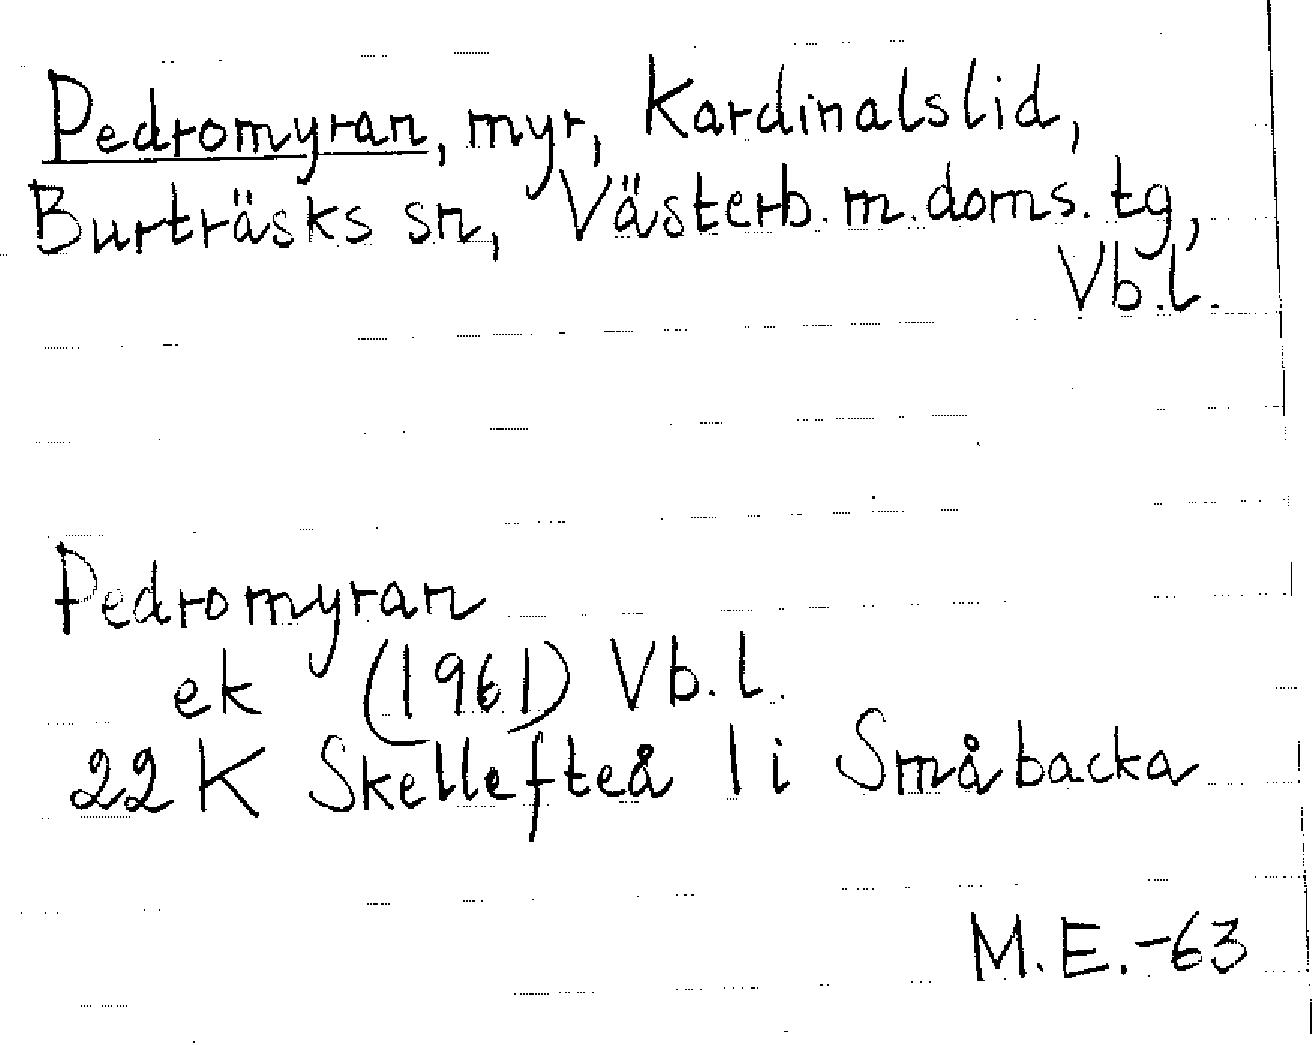 Pedromyran, myr, Kardinalslid,
Burträsks sn, Västerb. m. doms. tg,
Vb.l.
Pedromyran
ek (1961) Vb.l.
22 K Skellefteå 1 i Småbacka
M.E.-63